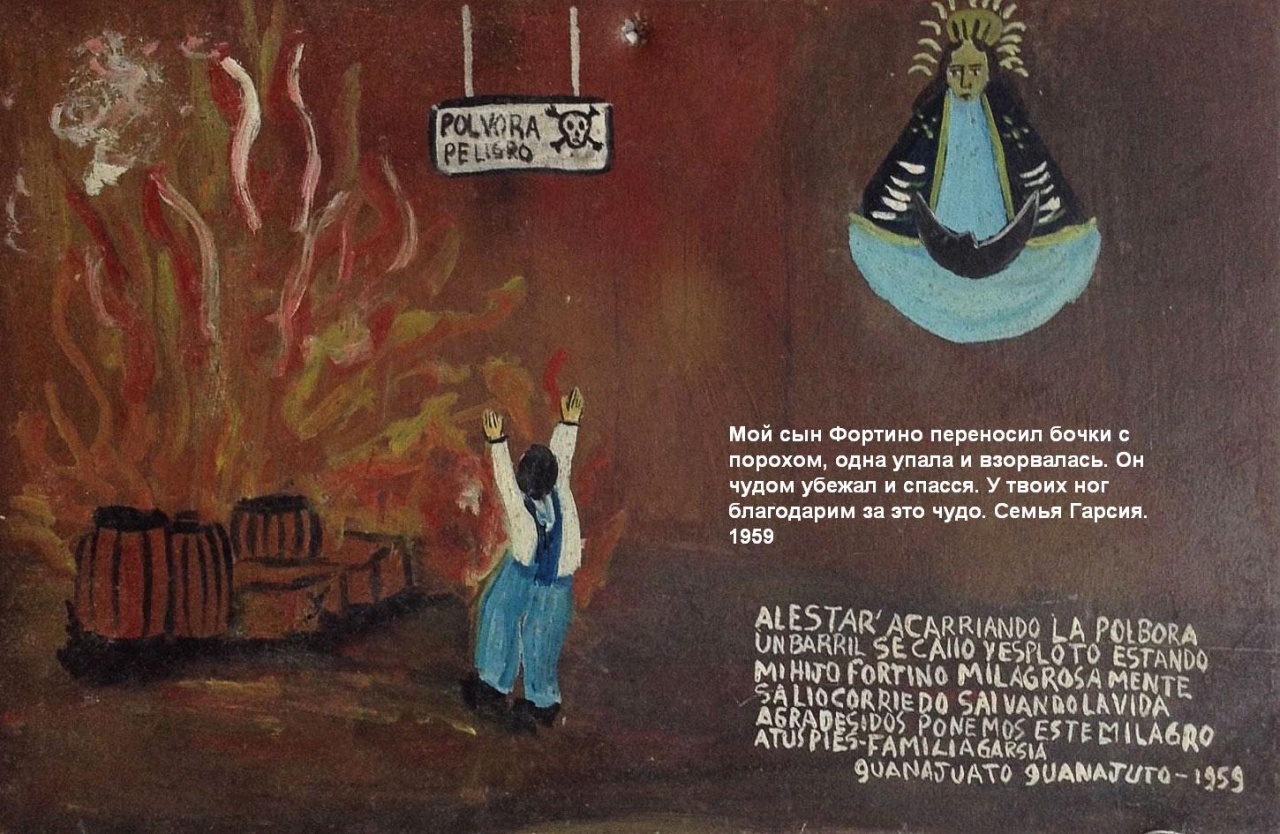 POLVORA
PELIGRO
Мой сын Фортино переносил бочки с
порохом, одна упала и взорвалась. Он
чудом убежал и спасся. У твоих ног
благодарим за это чудо. Семья Гарсия.
1959
AL ESTAR ACARRIANDO LA POLBORA
UN BARRIL SE CAIIO Y ESPLOTO ESTANDO
MI HIJO FORTINO MILAGROSA MENTE
SALIO CORRIEDO SALVANDO LA VIDA
AGRADESIDOS PONEMOS ESTE MILAGRO
A TUS PIES-FAMILIA GARSIA
GUANAJUATO GUANAJUTO-1959